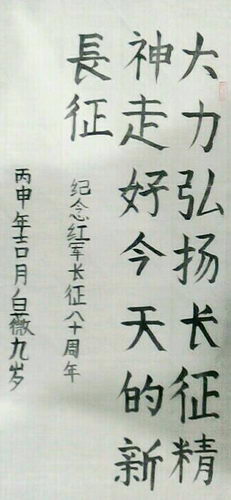 大力弘扬长征精
神走好今天的新
長征
纪念红军长征八十周年
丙申年吉月皇薇九岁